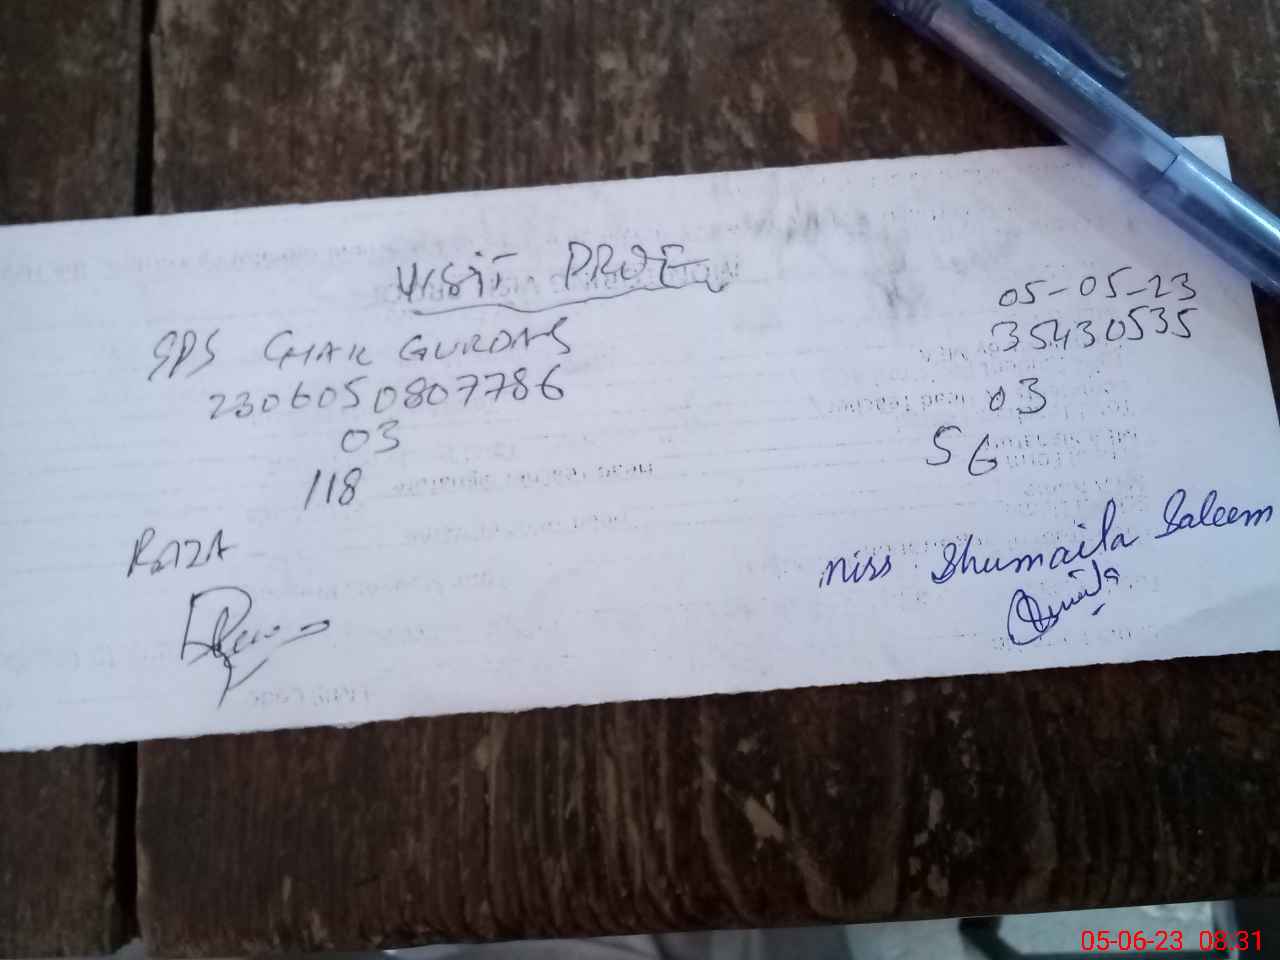 VISIT PROF
05-05-23
GPS CHAK GURDAS
35430535
2306050807786
03
03
56
118
RAZA
Miss Shumaila Saleem
05-06-23 08:31